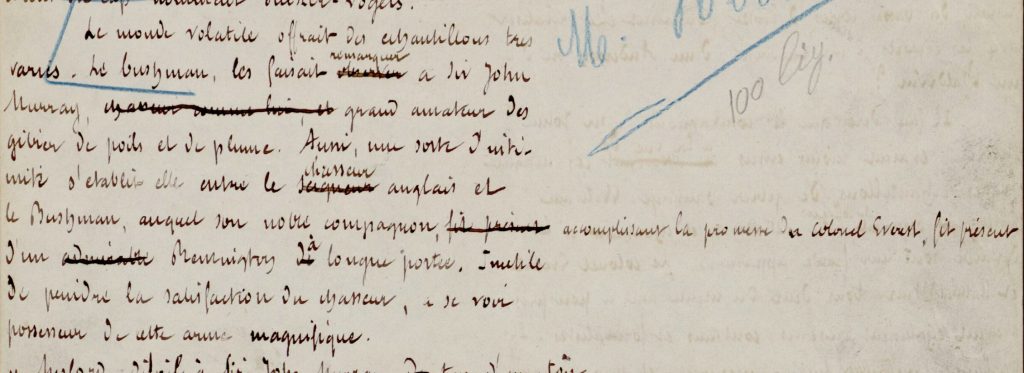 Le monde volatile offrait des echantillons tres
varies. Le bushman, les faisait remarquer a Sir John
Murray, chasseur comme lui, et grand amateur des
gibier de poils et de plume. Aussi, une sorte d'inti-
mité s'etablit elle entre le chasseur seigneur anglais et
le Bushman, auquel son noble compagnon, fit présent accomplissant la promesse du colonel Everest, fit présent
d'un admirable Remington à longue portée. Inutile
de peindre la satisfaction du chasseur, a se voir
possesseur de cette arme magnifique.
à Sir John
100 lig.